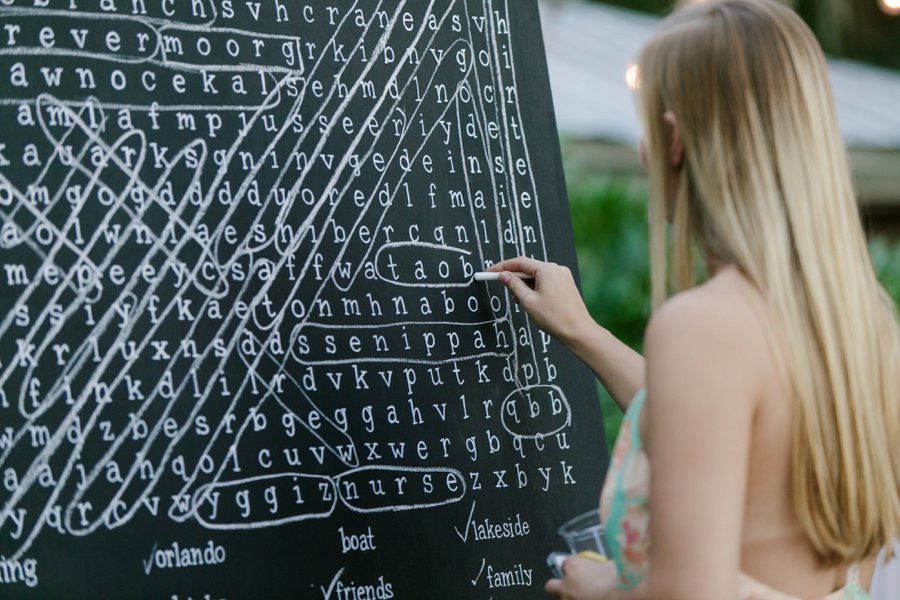 e b r a n c h s v h c r a n e a s v h
r e v e r m o o r g r k i b n v g o i
a w n o c e k a l s e h m d l n o c r
a m l a f m p l u s e e r i y d e t
k a u a r k s g n i n v g e d e i n s e
o m g o g d d d u o r e d l f m a i e
a o l w n l a e s h i b e r c q n l d n
m e p e e y c s a f f w a t a o b
s s i y f k a e t o n m h n a b o o
k r l u x n s d d s s e n i p p a n a p
n f i n k d l i h r d v k v p u t k d p b
w m d z b e s r b g e g g a h v l r q b b
a a j a h q o l c u v w x w e r g b q c u
y q r c v w y g g i z n u r s e z x b y k
✓orlando boat ✓lakeside
✓friends ✓family